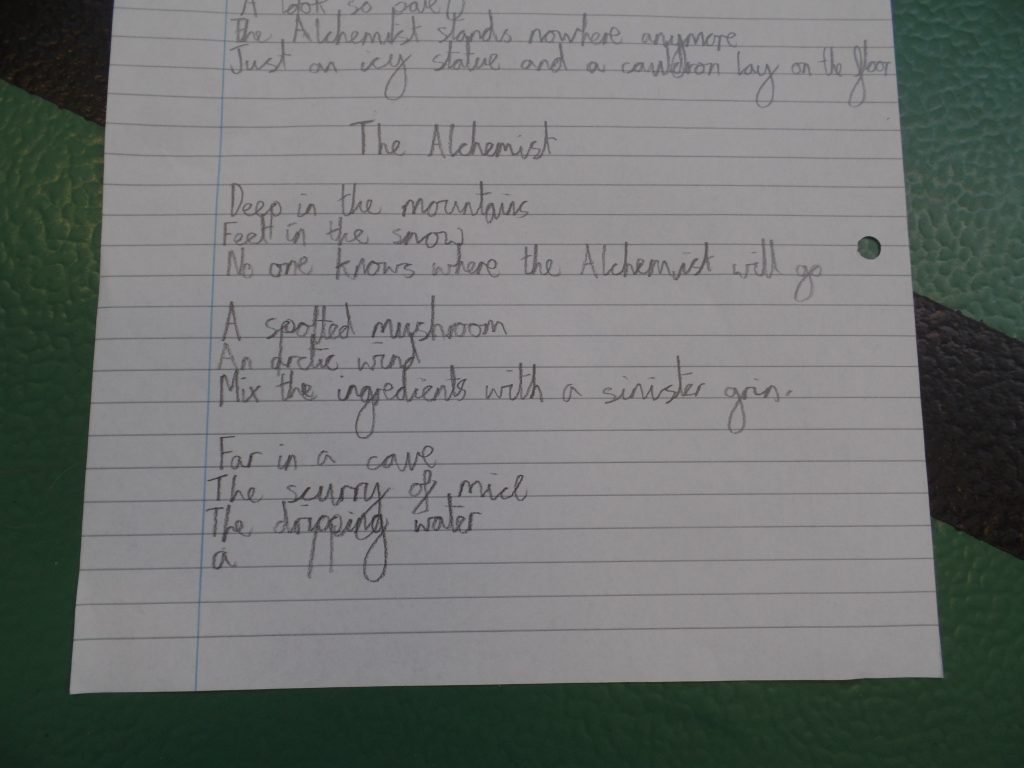 A look so
The Alchemist stands nowhere anymore
Just an icy statue and a cauldron lay on the floor
The Alchemist
Deep in the mountains
Feet in the snow
No one knows where the Alchemist will go
A spotted mushroom
An arctic wind
Mix the ingredients with a sinister grin.
Far in a cave
The scurry of mice
The dripping water
a